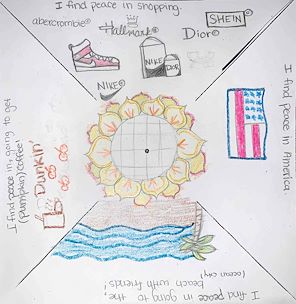 I find peace in shopping.
abercrombie®
Hallmark®
Dior®
SHEIN®
NIKE
DIOR
NIKE®
I find peace in America.
I find peace in going to the
beach with friends!
(ocean city)
I find peace in, going to get
(Pumpkin) coffee!
Dunkin'